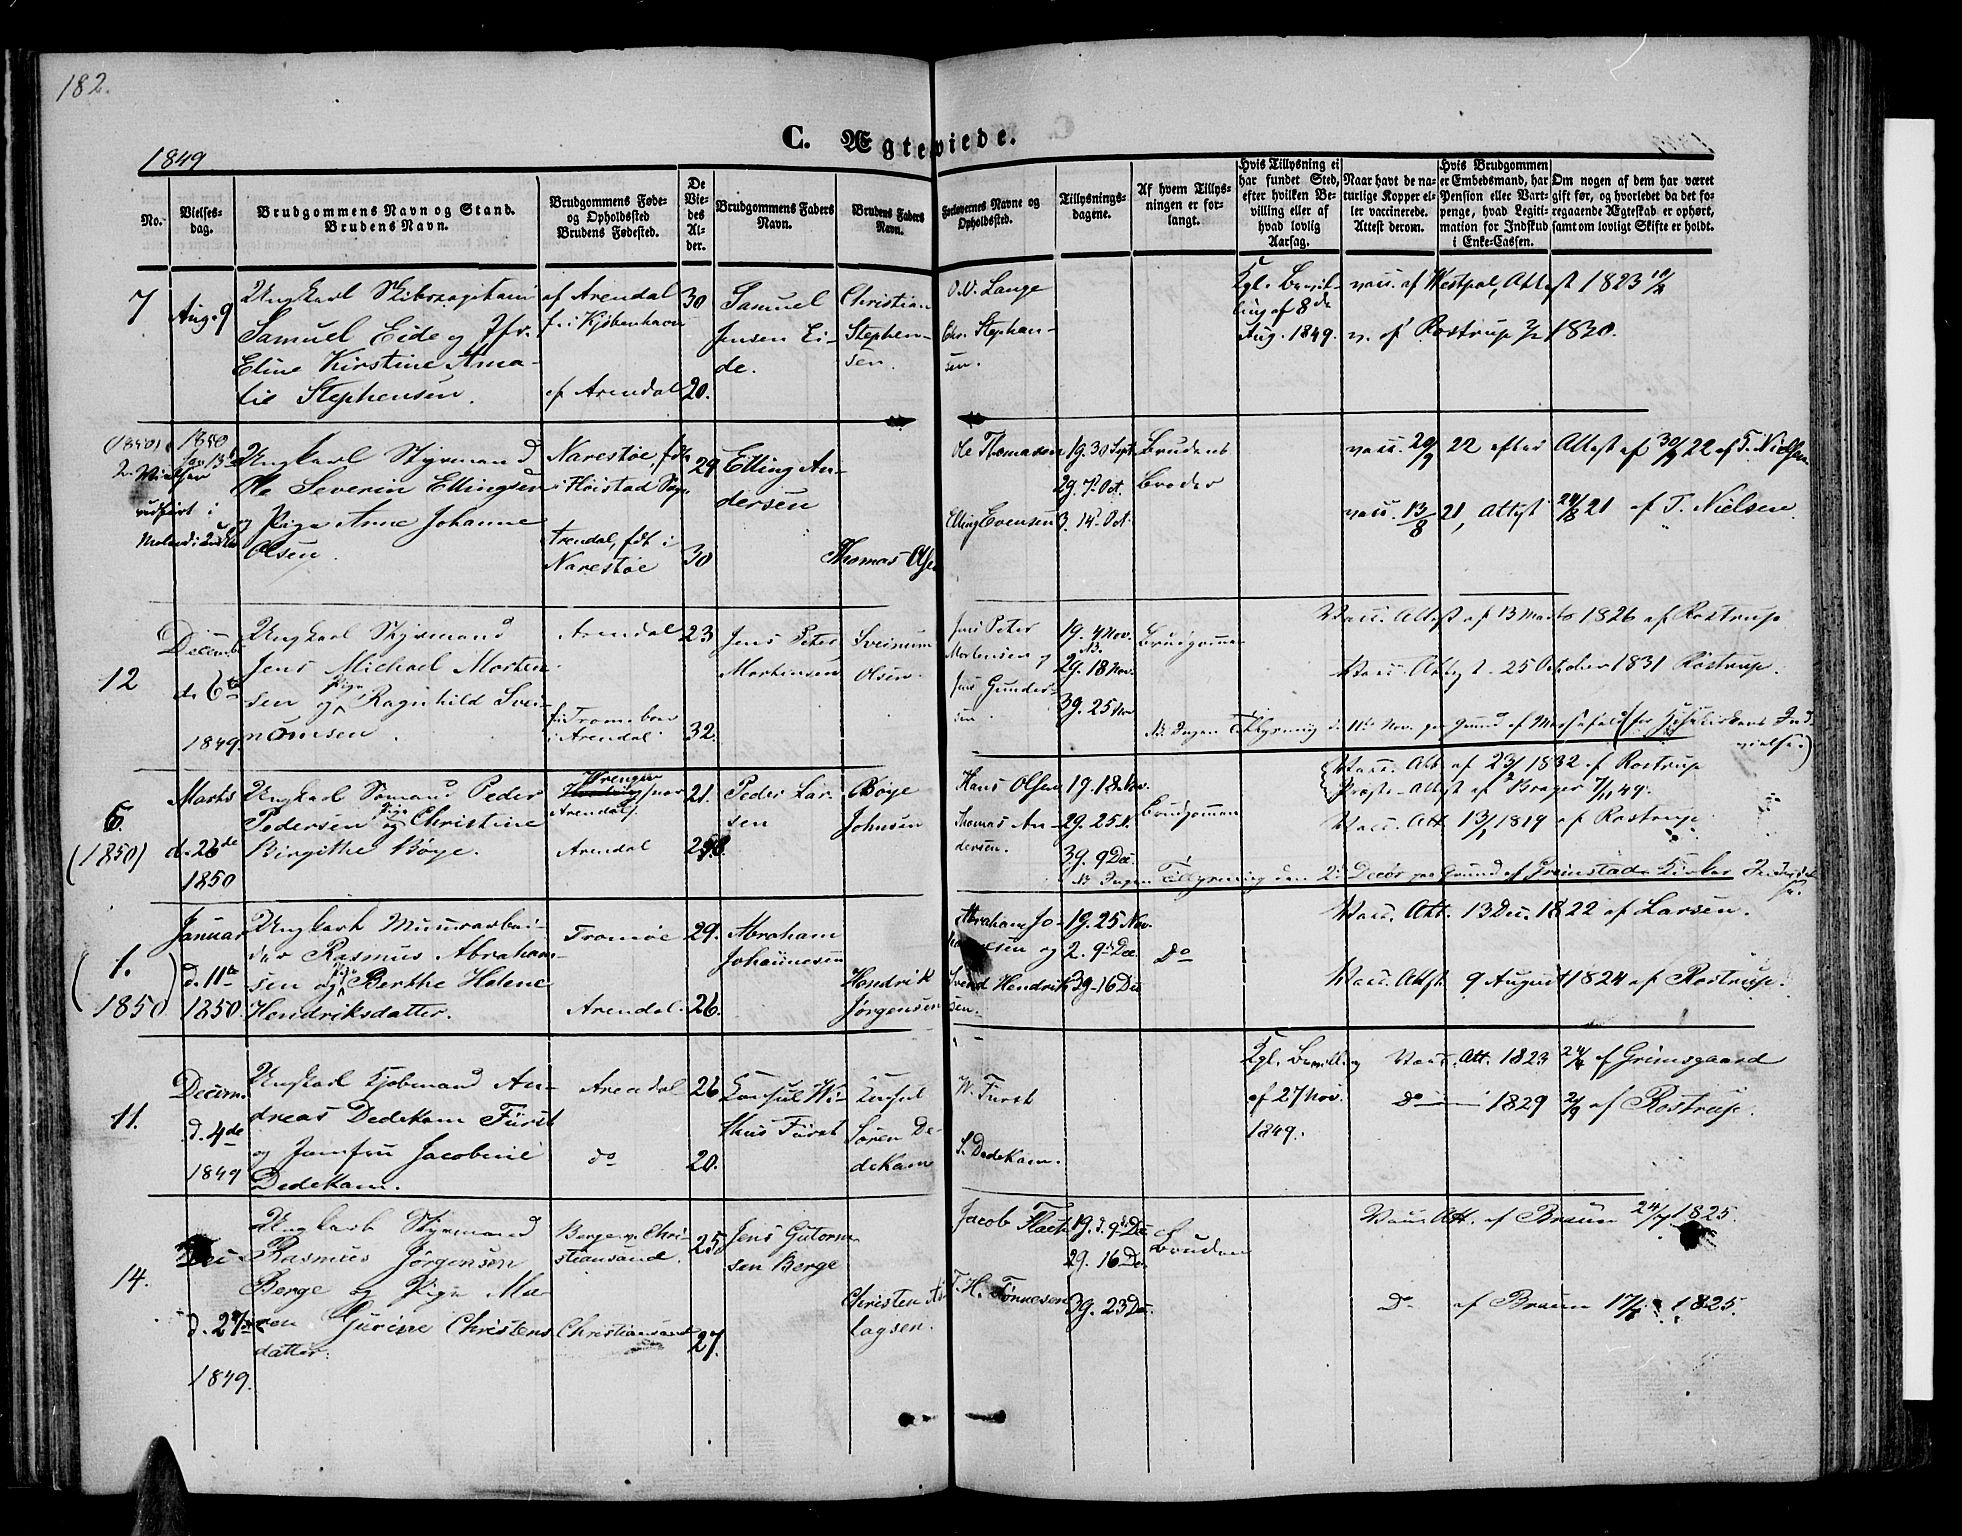 182.
C. Ægteviede.
1849
No.
Vielses-
dag.
Brudgommens Navn og Stand.
Brudens Navn.
Brudgommens Føde-
og Opholdssted
Brudens Fødested.
De
Vie-
des
Al-
der.
Brudgommens Faders
Navn.
Brudens Faders
Navn.
Forlovernes Navne og
Opholdssted.
Tillysnings-
dagene.
Af hvem Tillys-
ningen er for-
langt.
Hvis Tillysning ei
har fundet Sted,
efter hvilken Be-
villing eller af
hvad lovlig
Aarsag.
Naar havt de na-
turlige Kopper el-
ler vaccinerede.
Attest derom.
Hvis Brudgommen
er Embedsmand, har
Pension eller Vart-
penge, hvad Legiti-
mation for Indskud
i Enke-Cassen.
Om nogen af dem har været
gift før, og hvorledet da det fo-
regaaende Ægteskab er ophørt,
samt om lovligt Skifte er holdt.
7
Aug. 9
Ungkarl Skibscapitain
Samuel Eide og Jfr.
Eline Kirstine Ama-
lie Stephensen.
af Arendal
f. i Kjøbenhavn
af Arendal
30
20.
Samuel
Jensen Ei-
de.
Christian
Stephen-
sen.
O. V. Lange
Chr. Stephan-
sen.
Kgl. Bevil-
ling af 8de
Aug. 1849.
vacc. af Westpal, Attest 1823
v. af Rostrup 1830.
(1850)
2.
1850
Jan 13
Vielsen
udført i
Ungkarl Styrmand
Ole Severin Ellingsen
og Pige Anne Johanne
Olsen.
Narestøe, fdt
i Høistad Sogn
Arendal, fdt i
Narestøe
29
30
Elling An-
dersen
Thomas Olsen
Ole Thomassen
Elling Evensen
1g. 30 Sept.
2g. 7de Oct.
3. 14de Oct.
Brudens
Broder
vacc. 20/9 22 efter Attest af 30/9 22 af T. Nielsen
vacc. 13/8 21, Attest 24/8 21 af T. Nielsen.
12
Decemb.
d. 6te
1849.
Ungkarl Styrmand
Jens Michael Morten-
sen og Pige Ragnhild Svei-
nomsen.
Arendal
f. i Tromø boer
i Arendal
23
32.
Jens Peter
Mortensen
Sveinum
Olsen.
Jens Peter
Mortensen og
Jens Gunder-
sen.
1g. 4 Nov.
NB.
2g. 18 Nov.
3g. 25 Nov
Brudgommen
Vacc. Attest af 13 Marts 1826 af Rostrup
Vacc. Attest 25 October 1831 Rostrup.
NB. Ingen Tillysning d. 11te Nov. paa Grund af Messefald (før Kirkens Ind-
vielse.)
6.
(1850)
Marts
d. 26de
1850
Ungkarl Sømand Peder
Pedersen og Pige Christine
Birgithe Bøye.
Arendal
21.
Peder Lar-
sen
Bøye
Johnsen
Hans Olsen
Thomas An-
dersen.
1g. 18 Nov.
2g. 25 N.
3g. 9 Dec.
Brudgommen
Vacc. Att. af 23/1 1832 af Rostrup
Præste-Attest af Brager 7/11 49.
Vacc. Att. 13/1 1819 af Rostrup.
NB Ingen Tillysning den 2den Decbr paa Grund af Grimstads Kirkes Indvielse.
(1.
1850)
Januar
d. 11te
1850.
Ungkarl Muurarbei-
der Rasmus Abraham-
sen og Pige Berthe Helene
Hendriksdatter.
Tromøe
Arendal.
29.
26.
Abraham
Johannesen
Hendrik
Jørgensen
Abraham Jo-
hannesen og
Svend Hendrik-
sen.
1g. 25 Nov.
2. 9de Dec.
3g. 16 Dec
Do
Vacc. Att. 13 Dec. 1822 af Larsen.
Vacc. Attst. 9 August 1824 af Rostrup.
11.
Decem.
d. 4de
1849
Ungkarl Kjøbmand An-
dreas Dedekam Fürst
og Jomfru Jacobine
Dedekam.
Arendal
do
26
20.
Konsul Wi-
thus Fürst
Konsul
Søren De-
dekam
W. Fürst
S. Dedekam.
Kgl. Bevilling
af 27 Nov.
1849.
Vacc. Att. 1823 24/4 af Grimsgaard
Do 1829 2/9 af Rostrup.
14.
Dec
1849.
Ungkarl Styrmand
Rasmus Jørgensen
Berge og Pige Ma-
ren Gurine Christens
datter.
Berge v. Chri-
stiansand.
Christiansand
25
27.
Jens Gutorm-
sen Berge
Christen As-
lagsen.
Jacob Flack
T. H. Tønnesen
1g. d. 9de Dec
2g. 16 Dec
3g. 23 Dec.
Bruden
Vacc. Att. af Bruun 24/7 1825.
Do af Bruun 1825.